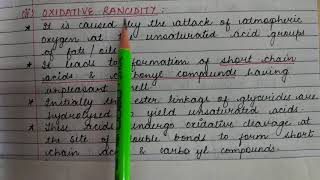 OXIDATIVE RANCIDITY:
* It is caused by the attack of atmospheric
oxygen at unsaturated acid groups
of fats/oils
* It leads to formation of short chain
acids & carbonyl compounds having
unpleasant smell.
* Initially the ester linkage of glycerides are
hydrolysed to yield unsaturated acids.
* These acids undergo oxidative cleavage at
the site of double bonds to form short
chain acids & carbonyl compounds.